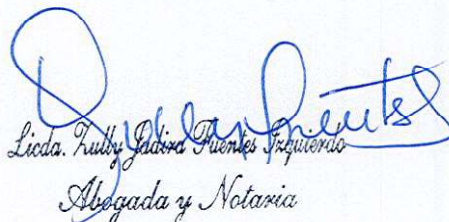 Licda. Zulby Jadira Fuentes Izquierdo
Abogada y Notaria